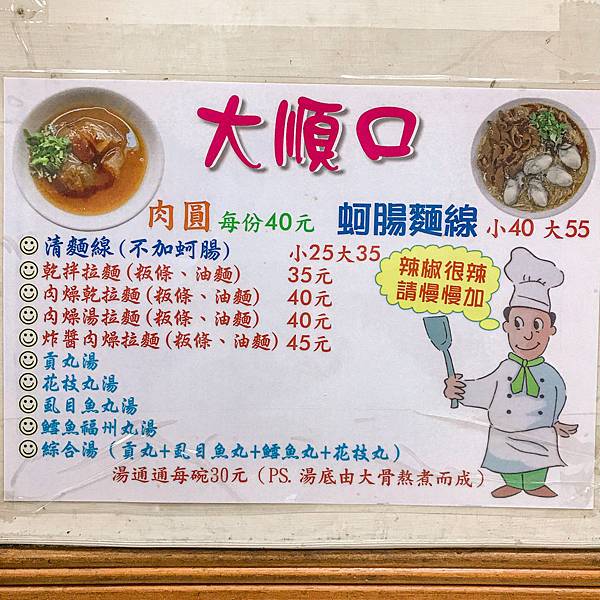 大順口
肉圓 每份40元 蚵腸麵線 小40 大55
清麵線(不加蚵腸) 小25大35
乾拌拉麵(粄條、油麵) 35元
肉燥乾拉麵(粄條、油麵) 40元
肉燥湯拉麵(粄條、油麵) 40元
炸醬肉燥拉麵(粄條、油麵) 45元
貢丸湯
花枝丸湯
虱目魚丸湯
鱈魚福州丸湯
綜合湯(貢丸+虱目魚丸+鱈魚丸+花枝丸)
湯通通每碗30元(PS.湯底由大骨熬煮而成)
辣椒很辣
請慢慢加